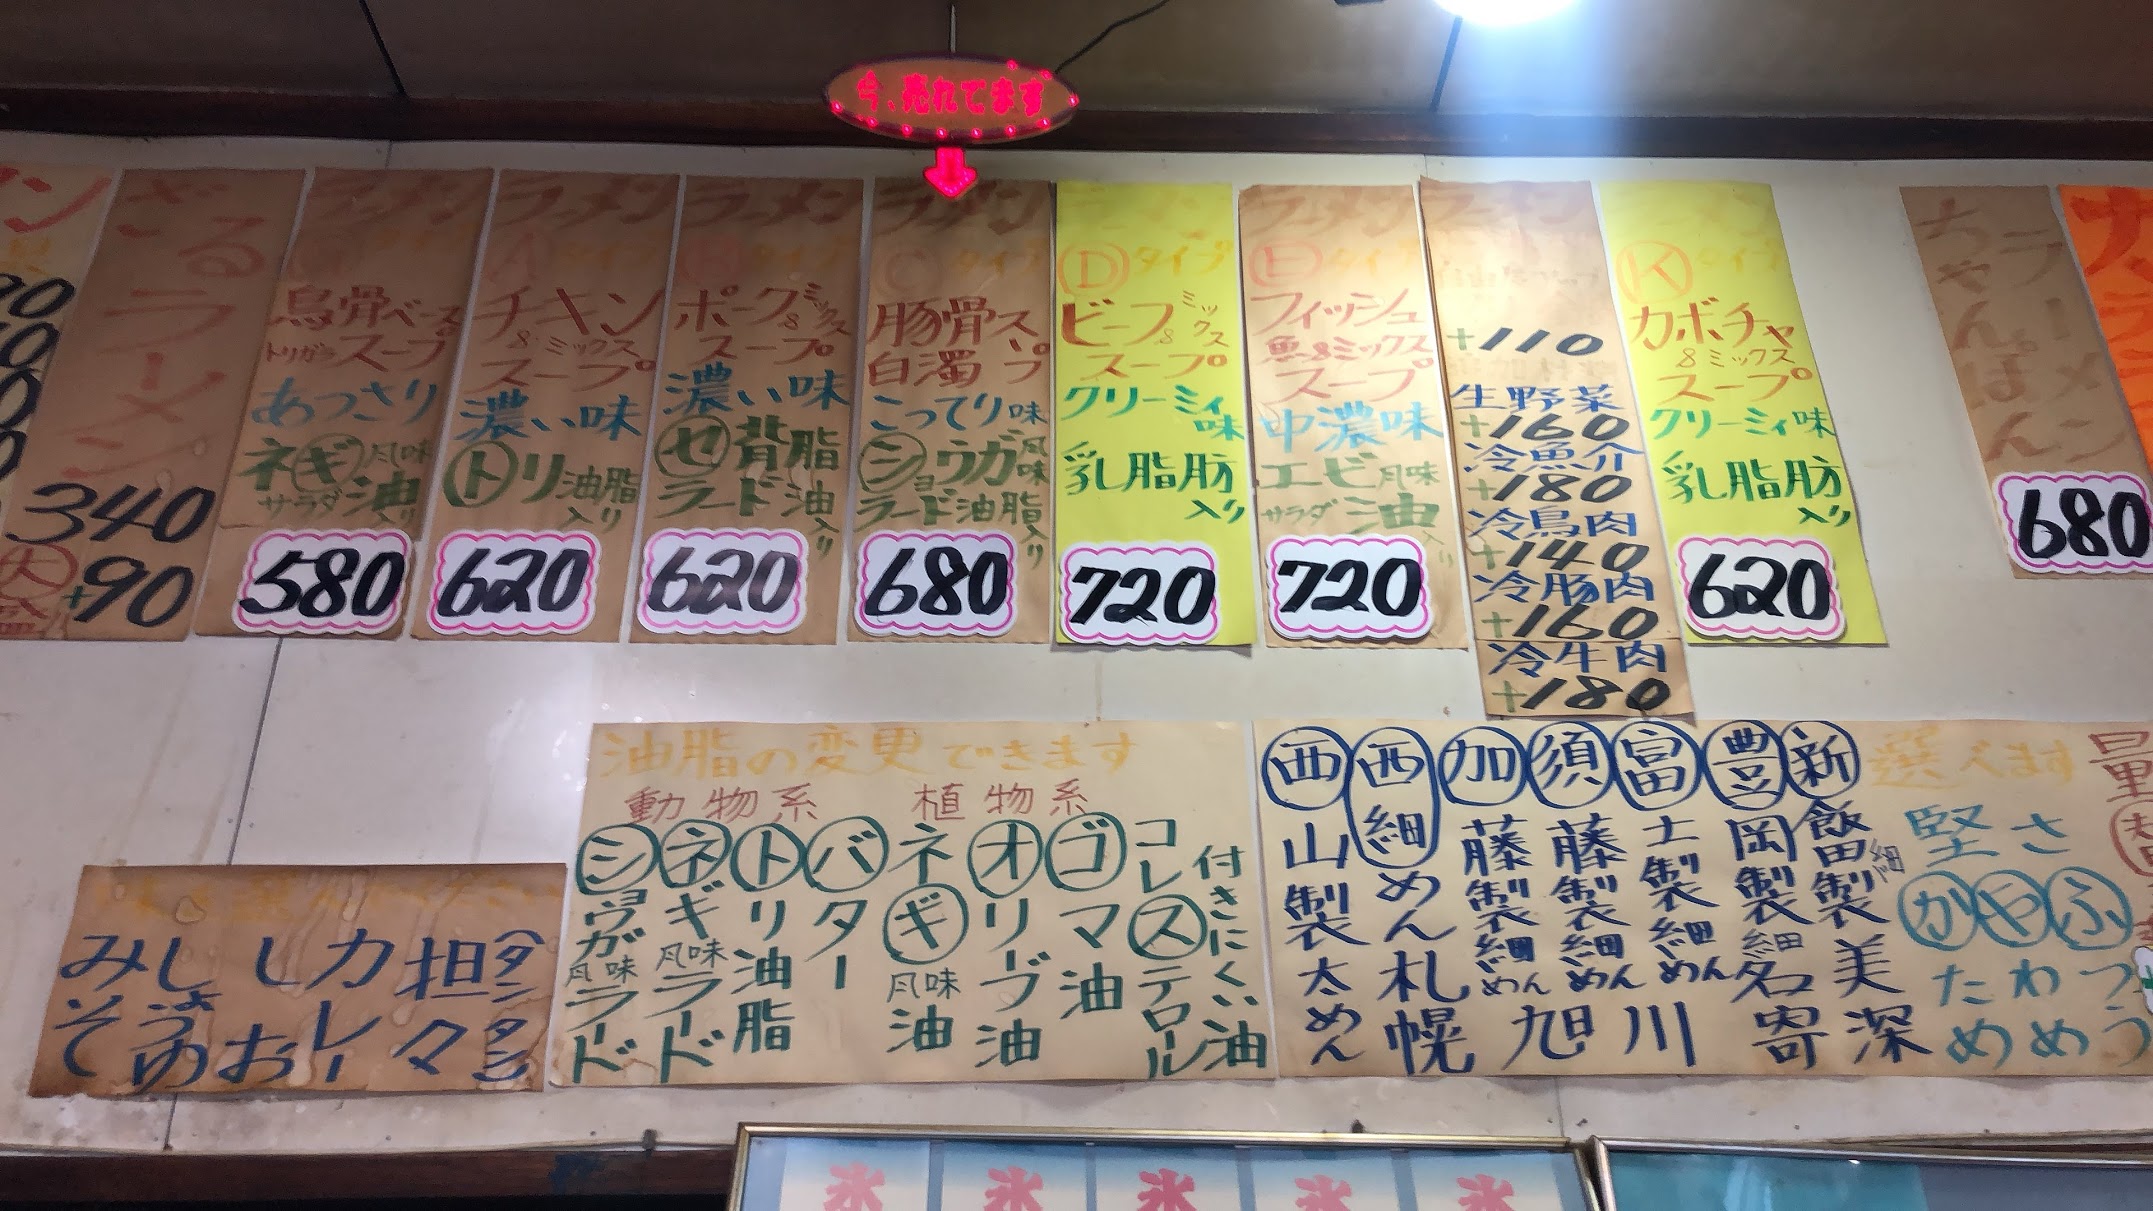 今、売れてます
ざるラーメン
340
大盛+90
ラーメン
タイプ
鳥骨ベース
トリガラスープ
あっさり
ネギ風味
サラダ油入り
580
ラーメン
Aタイプ
チキン
&ミックス
スープ
濃い味
トリ油脂入り
620
ラーメン
Bタイプ
ポーク&ミックス
スープ
濃い味
セ背脂
ラード油入り
620
ラーメン
Cタイプ
豚骨スープ
白濁
こってり味
ショウガ風味
ラード油脂入り
680
ラーメン
Dタイプ
ビーフ&ミックス
スープ
クリーミィ味
乳脂肪入り
720
ラーメン
Eタイプ
フィッシュ
魚&ミックス
スープ
中濃味
エビ風味
サラダ油入り
720
+110
生野菜
+160
冷魚介
+180
冷鳥肉
+140
冷豚肉
+160
冷牛肉
+180
Kタイプ
カボチャ
&ミックス
スープ
クリーミィ味
乳脂肪入り
620
ラーメン
ちゃんぽん
680
みそ
しょうゆ
しお
カレー
担々
(タンタン)
油脂の変更できます
動物系
植物系
ショウガ風味ラード
ネギ風味ラード
トリ油脂
バター
ネギ風味油
オリーブ油
ゴマ油
コレステロール
付きにくい油
西山製太めん
西細めん
加藤製細めん
須藤製細めん
富士製細めん
豊岡製細
新飯田製細
札幌
旭川
名寄
美深
選べます
堅さ
かため
やわめ
ふつう
量
氷
氷
氷
氷
氷